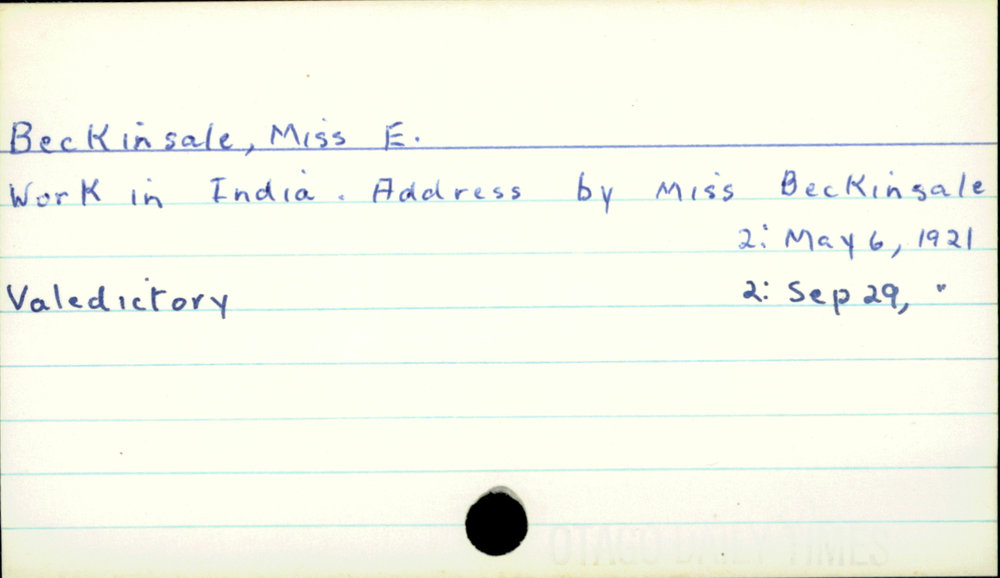 Beckinsale, Miss E.
Work in India. Address by Miss Beckinsale
2: May 6, 1921
Valedictory 2: Sep 29, "
OTAGO DAILY TIMES